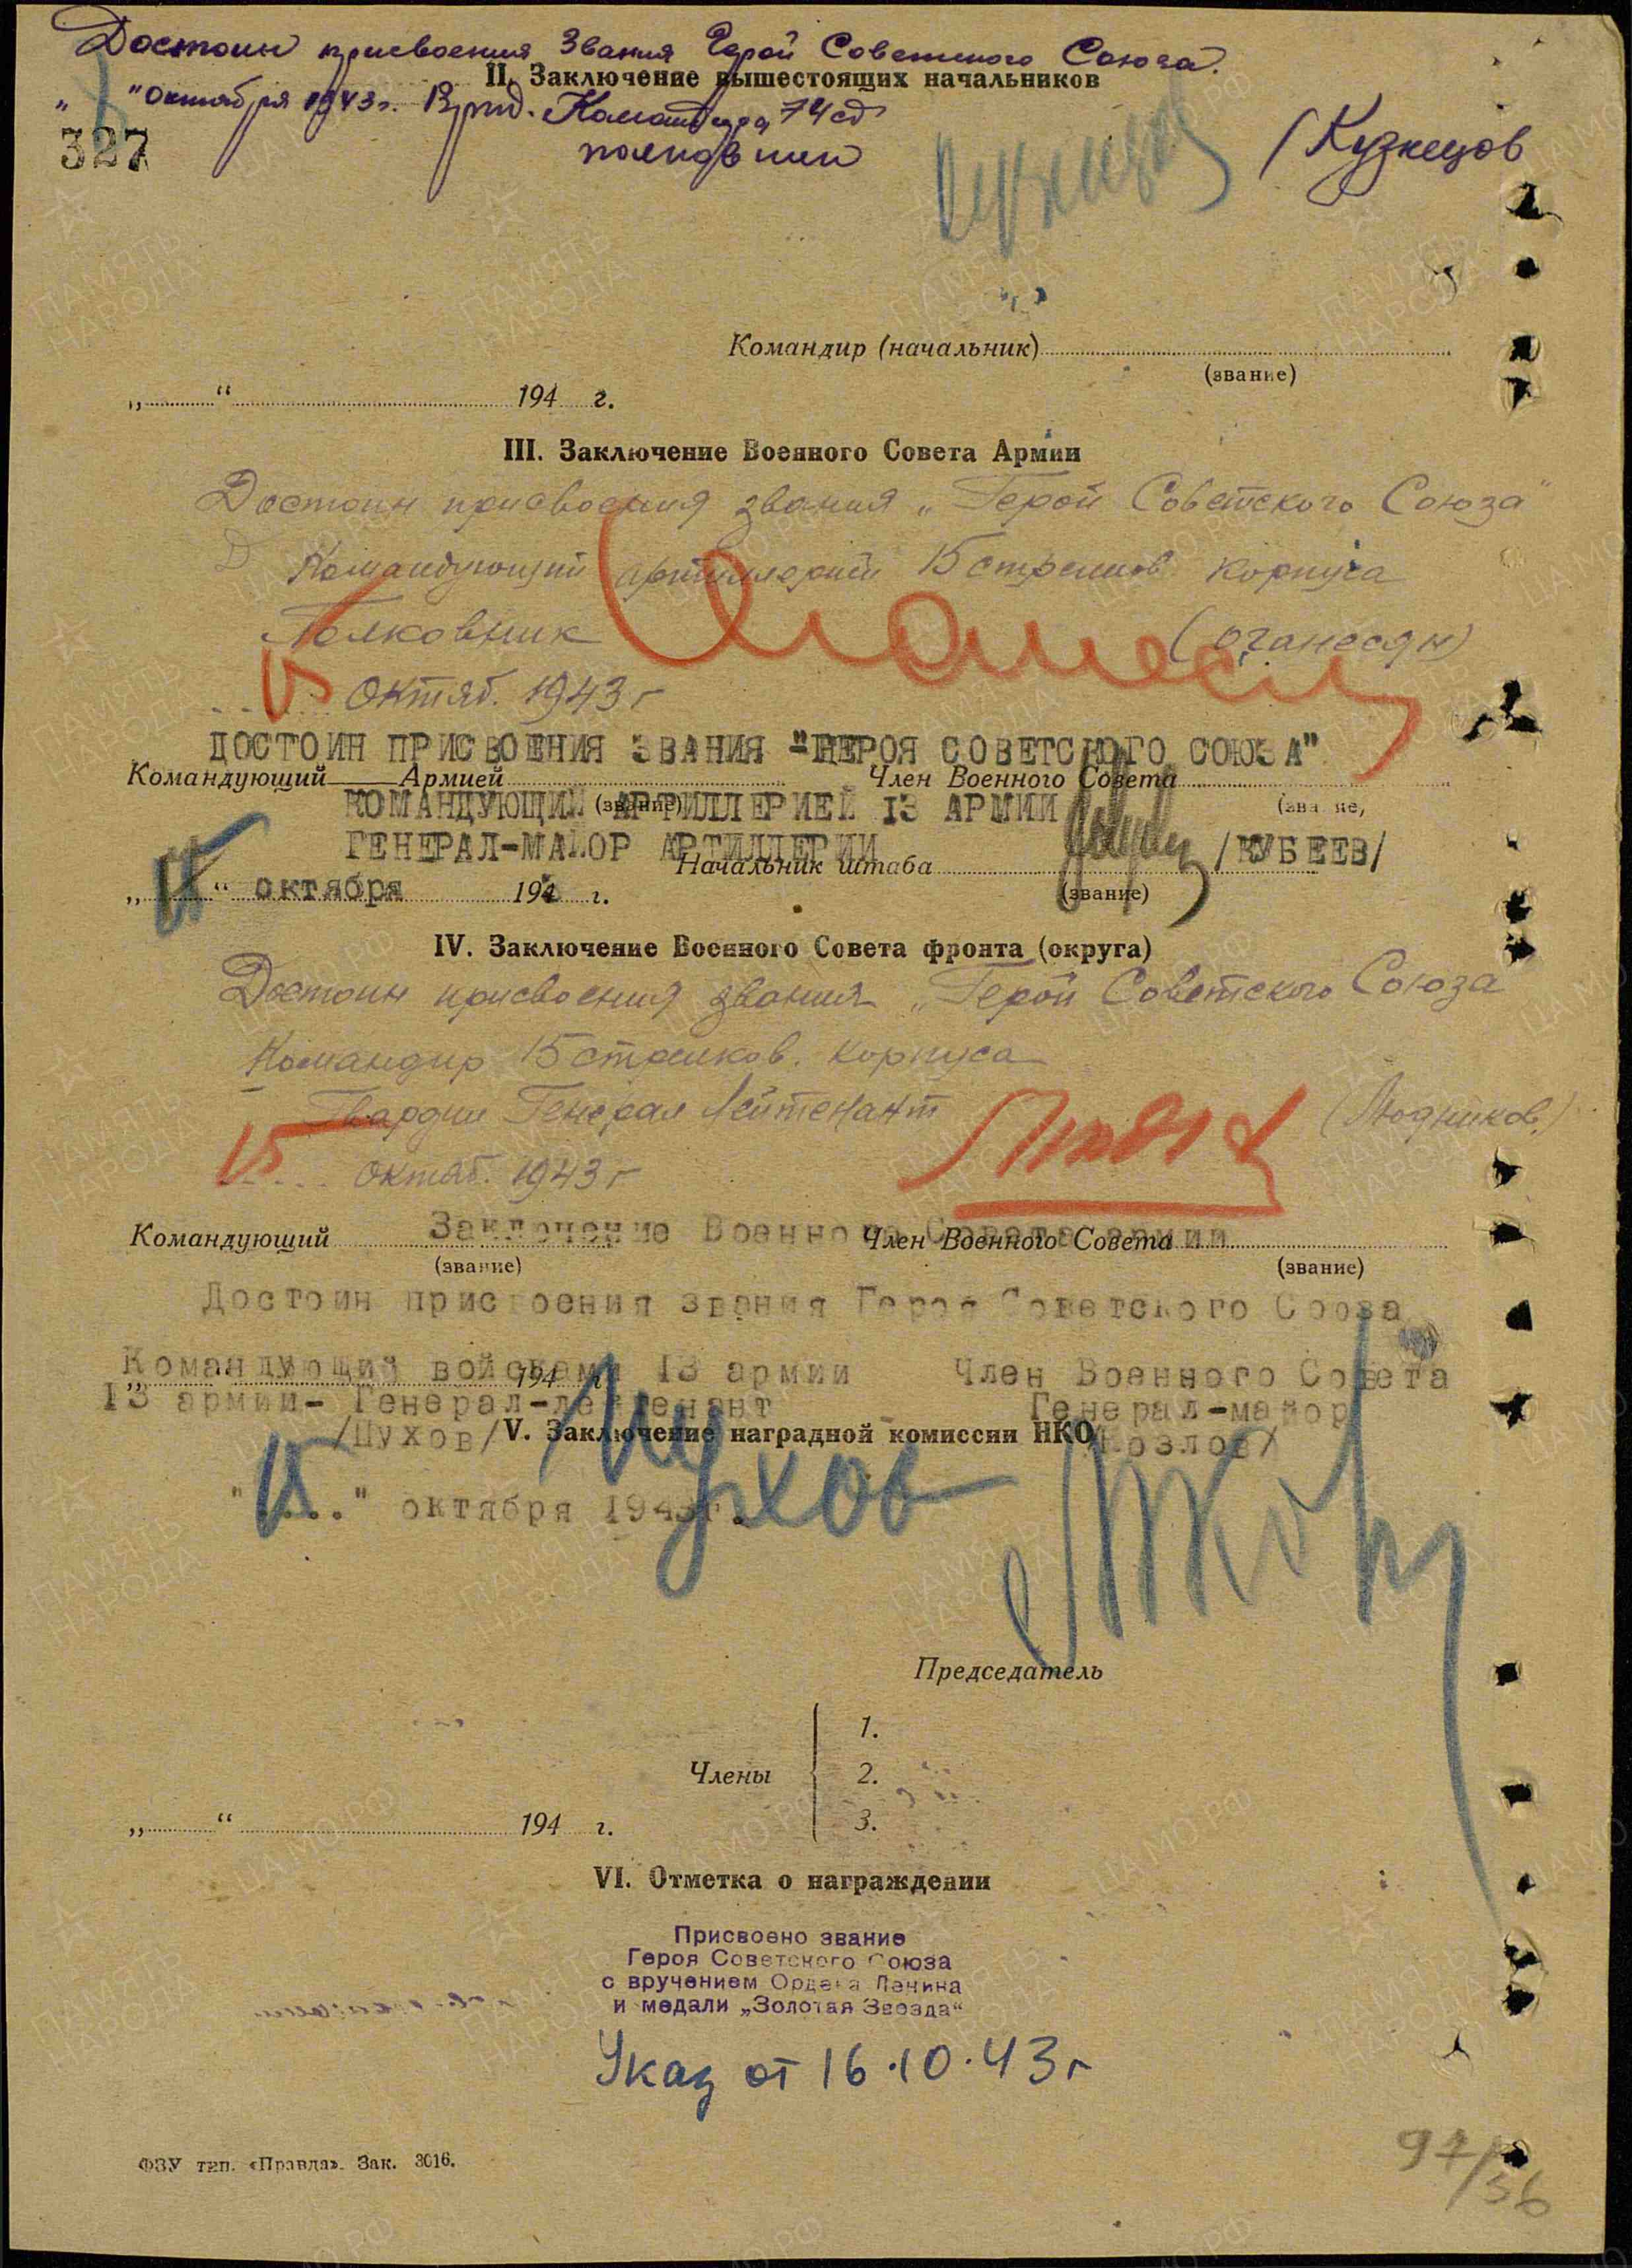 Достоин присвоения Звания Герой Советского Союза.
II. Заключение вышестоящих начальников
" " Октября 1943г. Врид. Командира 74 сд
327
полковник
(Кузнецов
Командир (начальник)
(звание)
„ “ 194 г.
III. Заключение Военного Совета Армии
Достоин присвоения звания „Герой Советского Союза"
Командующий артиллерией 15 стрелков. корпуса
Полковник (Оганесян)
15 Октяб. 1943 г
ДОСТОИН ПРИСВОЕНИЯ ЗВАНИЯ "ГЕРОЯ СОВЕТСКОГО СОЮЗА"
Командующий Армией Член Военного Совета
(звание) (звание)
КОМАНДУЮЩИЙ АРТИЛЛЕРИЕЙ 13 АРМИИ
ГЕНЕРАЛ-МАЙОР АРТИЛЛЕРИИ /КУБЕЕВ/
Начальник штаба
„15“ октября 1943 г.
(звание)
IV. Заключение Военного Совета фронта (округа)
Достоин присвоения звания „Герой Советского Союза
Командир 15 стрелков. корпуса
Гвардии Генерал Лейтенант (Людников.)
15 октяб. 1943 г
Заключение Военного Совета армии
Командующий Член Военного Совета
(звание) (звание)
Достоин присвоения звания Героя Советского Союза
Командующий войсками 13 армии Член Военного Совета
194 г.
13 армии- Генерал-лейтенант Генерал-майор
/Пухов/ /Козлов/
V. Заключение наградной комиссии НКО
Пухов
"15" октября 1943г.
Председатель
1.
Члены 2.
3.
„ “ 194 г.
VI. Отметка о награждении
Присвоено звание
Героя Советского Союза
с вручением Ордена Ленина
и медали „Золотая Звезда“
Указ от 16.10.43 г
ФЗУ тип. «Правда». Зак. 3016.
97/56
ПАМЯТЬ
НАРОДА
ЦАМО РФ